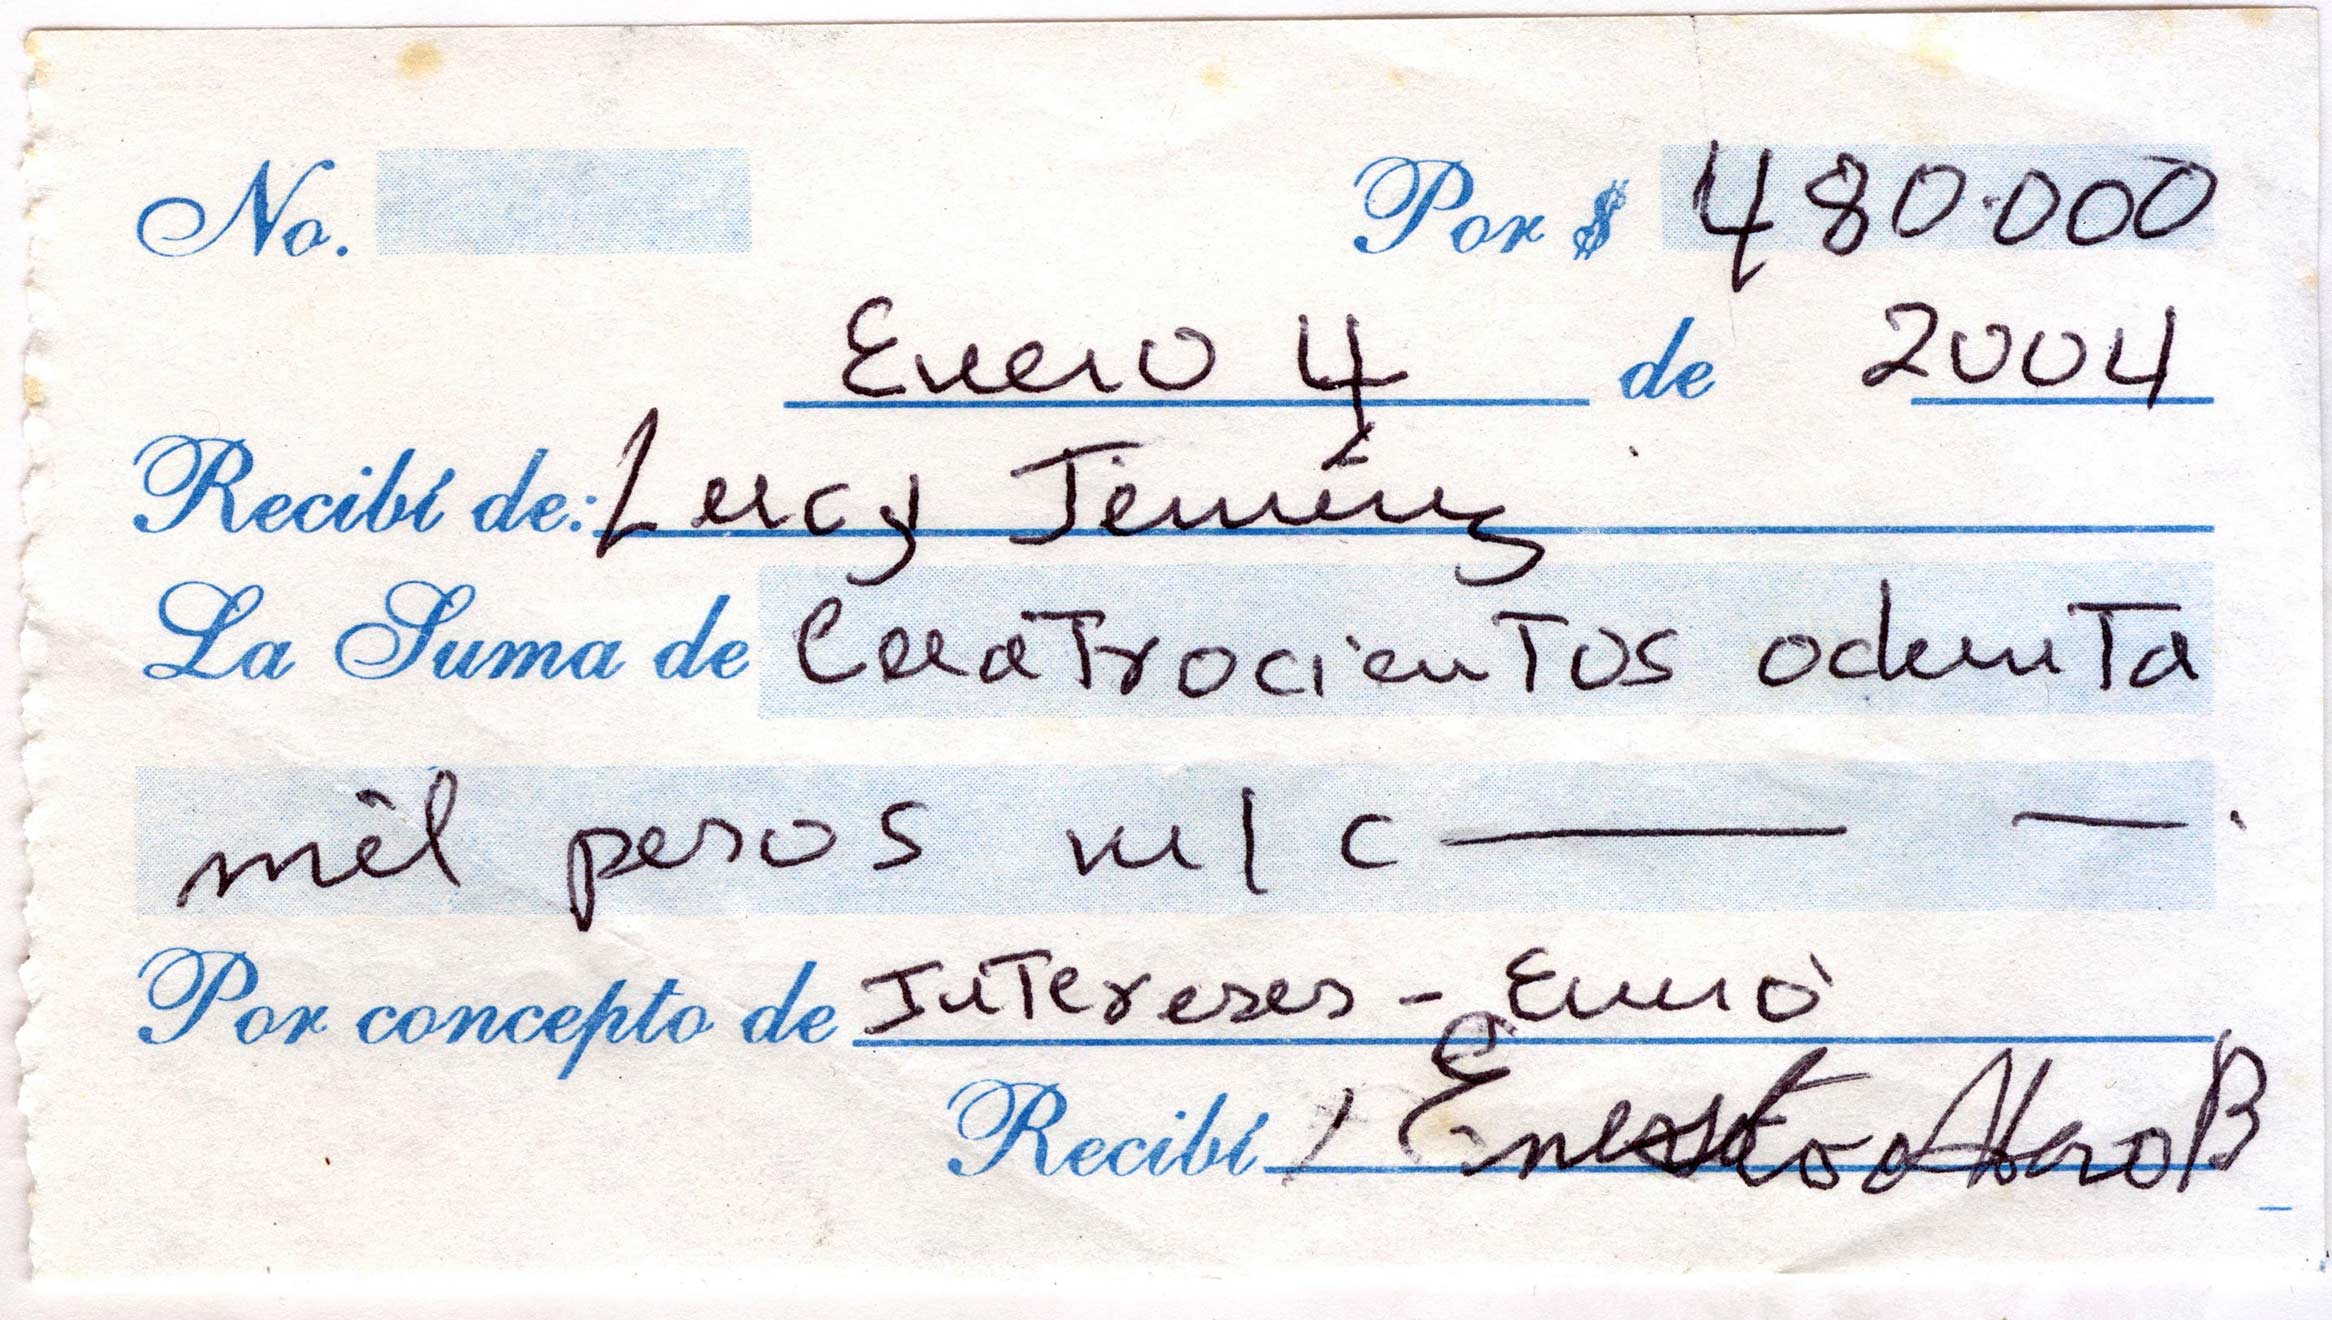 No. Por $ 480.000
Enero 4 de 2004
Recibí de: Lucy Jiménez
La Suma de Cuatrocientos ochenta
mil pesos m/c
Por concepto de Intereses - Enero
Recibí Ernesto